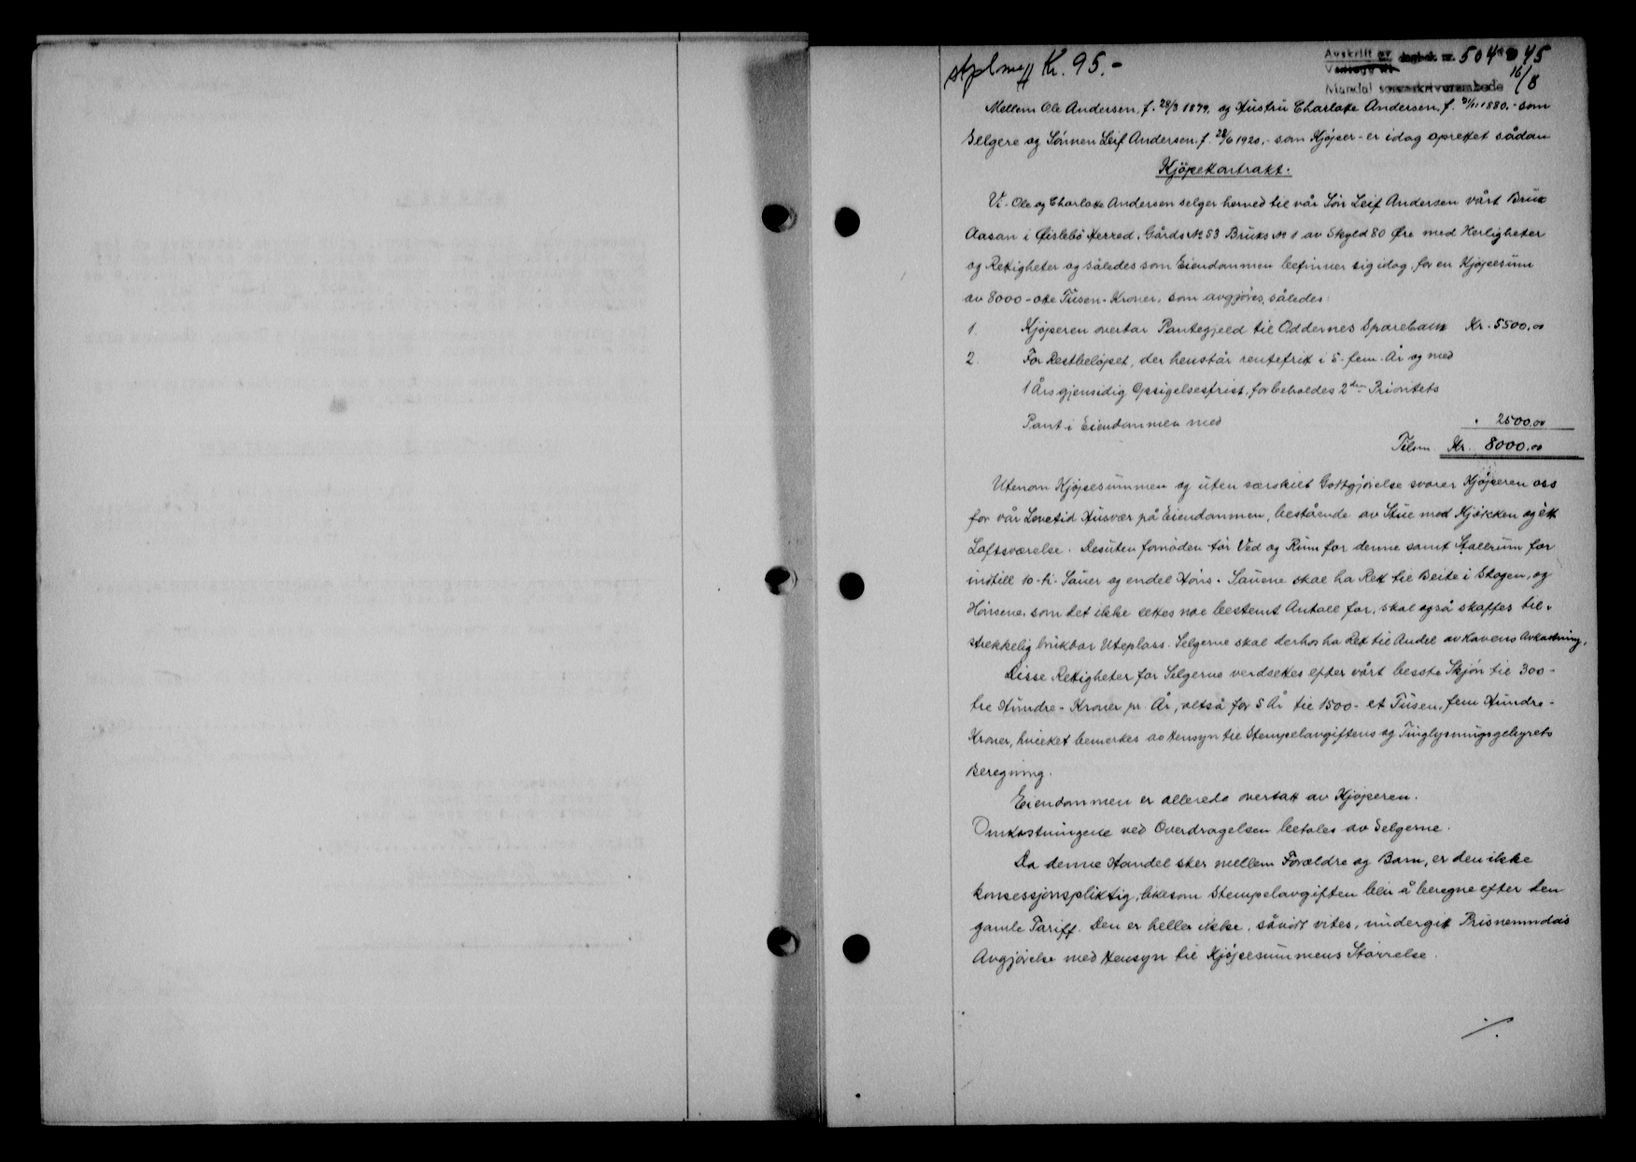 stplmsf Kr. 95.-
Avskrift av dagbok nr. 504 1945
Vedlegg til 16/8
Mandal sorenskriverembede
Mellem Ole Andersen, f. 28/3 1879, og Hustru Charlotte Andersen, f. 21/11 1880, - som
Selgere og Sönnen Leif Andersen, f. 28/6 1920, - som Kjöper - er idag oprettet sådan
Kjöpekontrakt.
Vi - Ole og Charlotte Andersen selger herved til vår Sön Leif Andersen vårt Bruk
Aasan i Öislebö Herred, Gårds № 53 Bruks № 1 av Skyld 80 Øre med Herligheter
og Rettigheter og således som Eiendommen befinner sig idag, for en Kjöpesum
av 8000 - otte Tusen - Kroner, som avgjöres således:
1. Kjöperen overtar Pantegjeld til Oddernes Sparebank Kr. 5500.00
2. For Restbelöpet, der henstår rentefrit i 5 - fem - År og med
1 Års gjensidig Opsigelsesfrist, forbeholdes 2den Prioritets
Pant i Eiendommen med " 2500.00
Tilsm. Kr. 8000.00
Utenom Kjöpesummen og uten særskilt Godtgjörelse svarer Kjöperen oss
for vår Levetid Husvær på Eiendommen, bestående av Stue med Kjökken og ett
Loftsværelse. Desuten fornöden tör Ved og Rum for denne samt Stallrum for
inntill 10 - ti - Sauer og endel Höns. Sauene skal ha Rett til Beite i Skogen, og
Hönsene, som det ikke settes noe bestemt Antall for, skal også skaffes til-
strekkelig brukbar Uteplass. Selgerne skal derhos ha Rett til Andel av Havens Avkastning.
Disse Rettigheter for Selgerne verdsettes efter vårt besste Skjön til 300 -
tre Hundre - Kroner pr. År, altså for 5 År til 1500 - et Tusen, fem Hundre -
Kroner, hvilket bemerkes av Hensyn til Stempelavgiftens og Tinglysningsgebyrets
Beregning.
Eiendommen er allerede overtatt av Kjöperen.
Omkostningene ved Overdragelsen betales av Selgerne.
Da denne Handel sker mellem Forældre og Barn, er den ikke
konsessjonspliktig, likesom Stempelavgiften blir å beregne efter den
gamle Tariff. Den er heller ikke, såvidt vites, undergitt Prisnemndas
Avgjörelse med Hensyn til Kjöpesummens Störrelse.
./.